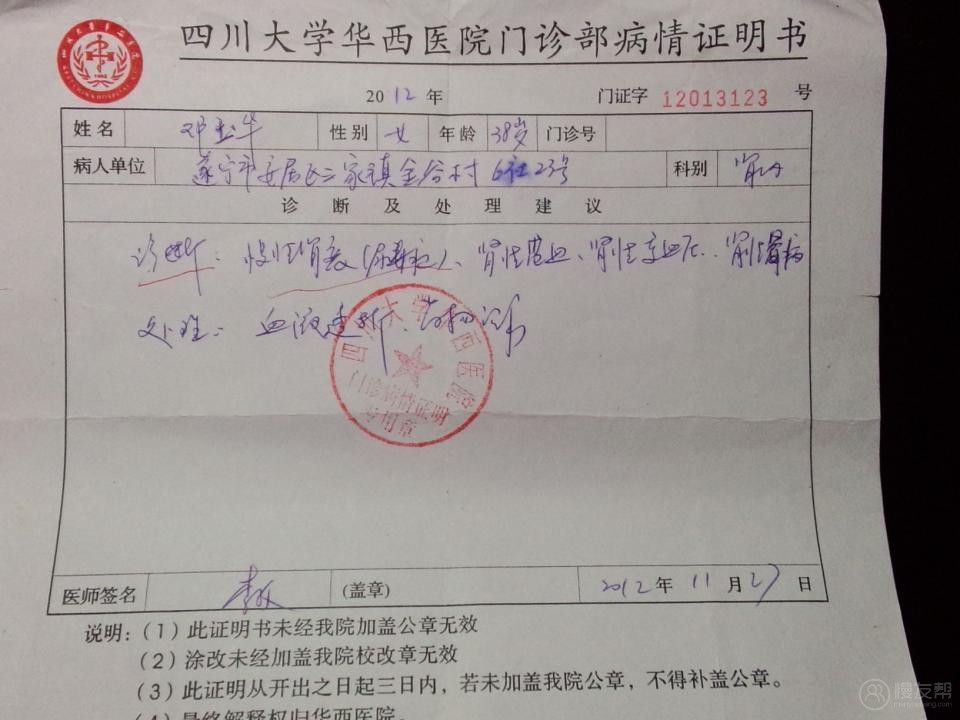 四川大学华西医院门诊部病情证明书
2012年 门证字 12013123 号
姓名 邓玉华 性别 女 年龄 38岁 门诊号
病人单位 遂宁市安居区三家镇金谷村6社23号 科别 肾内
诊断及处理建议
诊断：慢性肾衰(尿毒症)、肾性高血压、肾性贫血、肾性骨病
处理：血液透析、药物治疗
四川大学华西医院
门诊病情证明
专用章
医师签名 (盖章) 2012年11月27日
说明：(1) 此证明书未经我院加盖公章无效
(2) 涂改未经加盖我院校改章无效
(3) 此证明从开出之日起三日内，若未加盖我院公章，不得补盖公章。
(4) 最终解释权归华西医院。
慢友帮